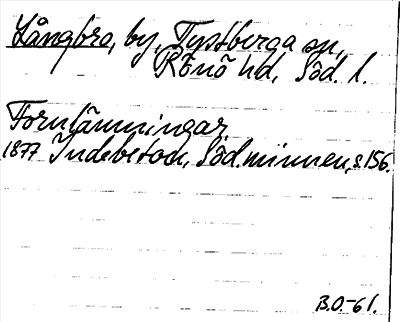 Långbro, by, Tystberga sn,
Rönö hd, Söd. l.
Fornlämningar
1877 Indebetou, Söd.minnen, s.156.
B.O.-61.